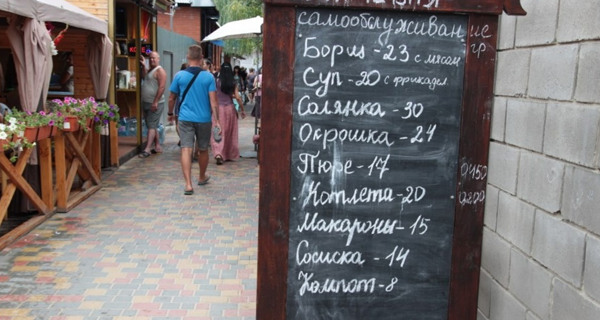 самообслуживан
Борщ - 23 с мясом
Суп - 20 с фрикадел
Солянка - 30
Окрошка - 24
Пюре - 17
Котлета - 20
Макароны - 15
Сосиска - 14
Компот - 8